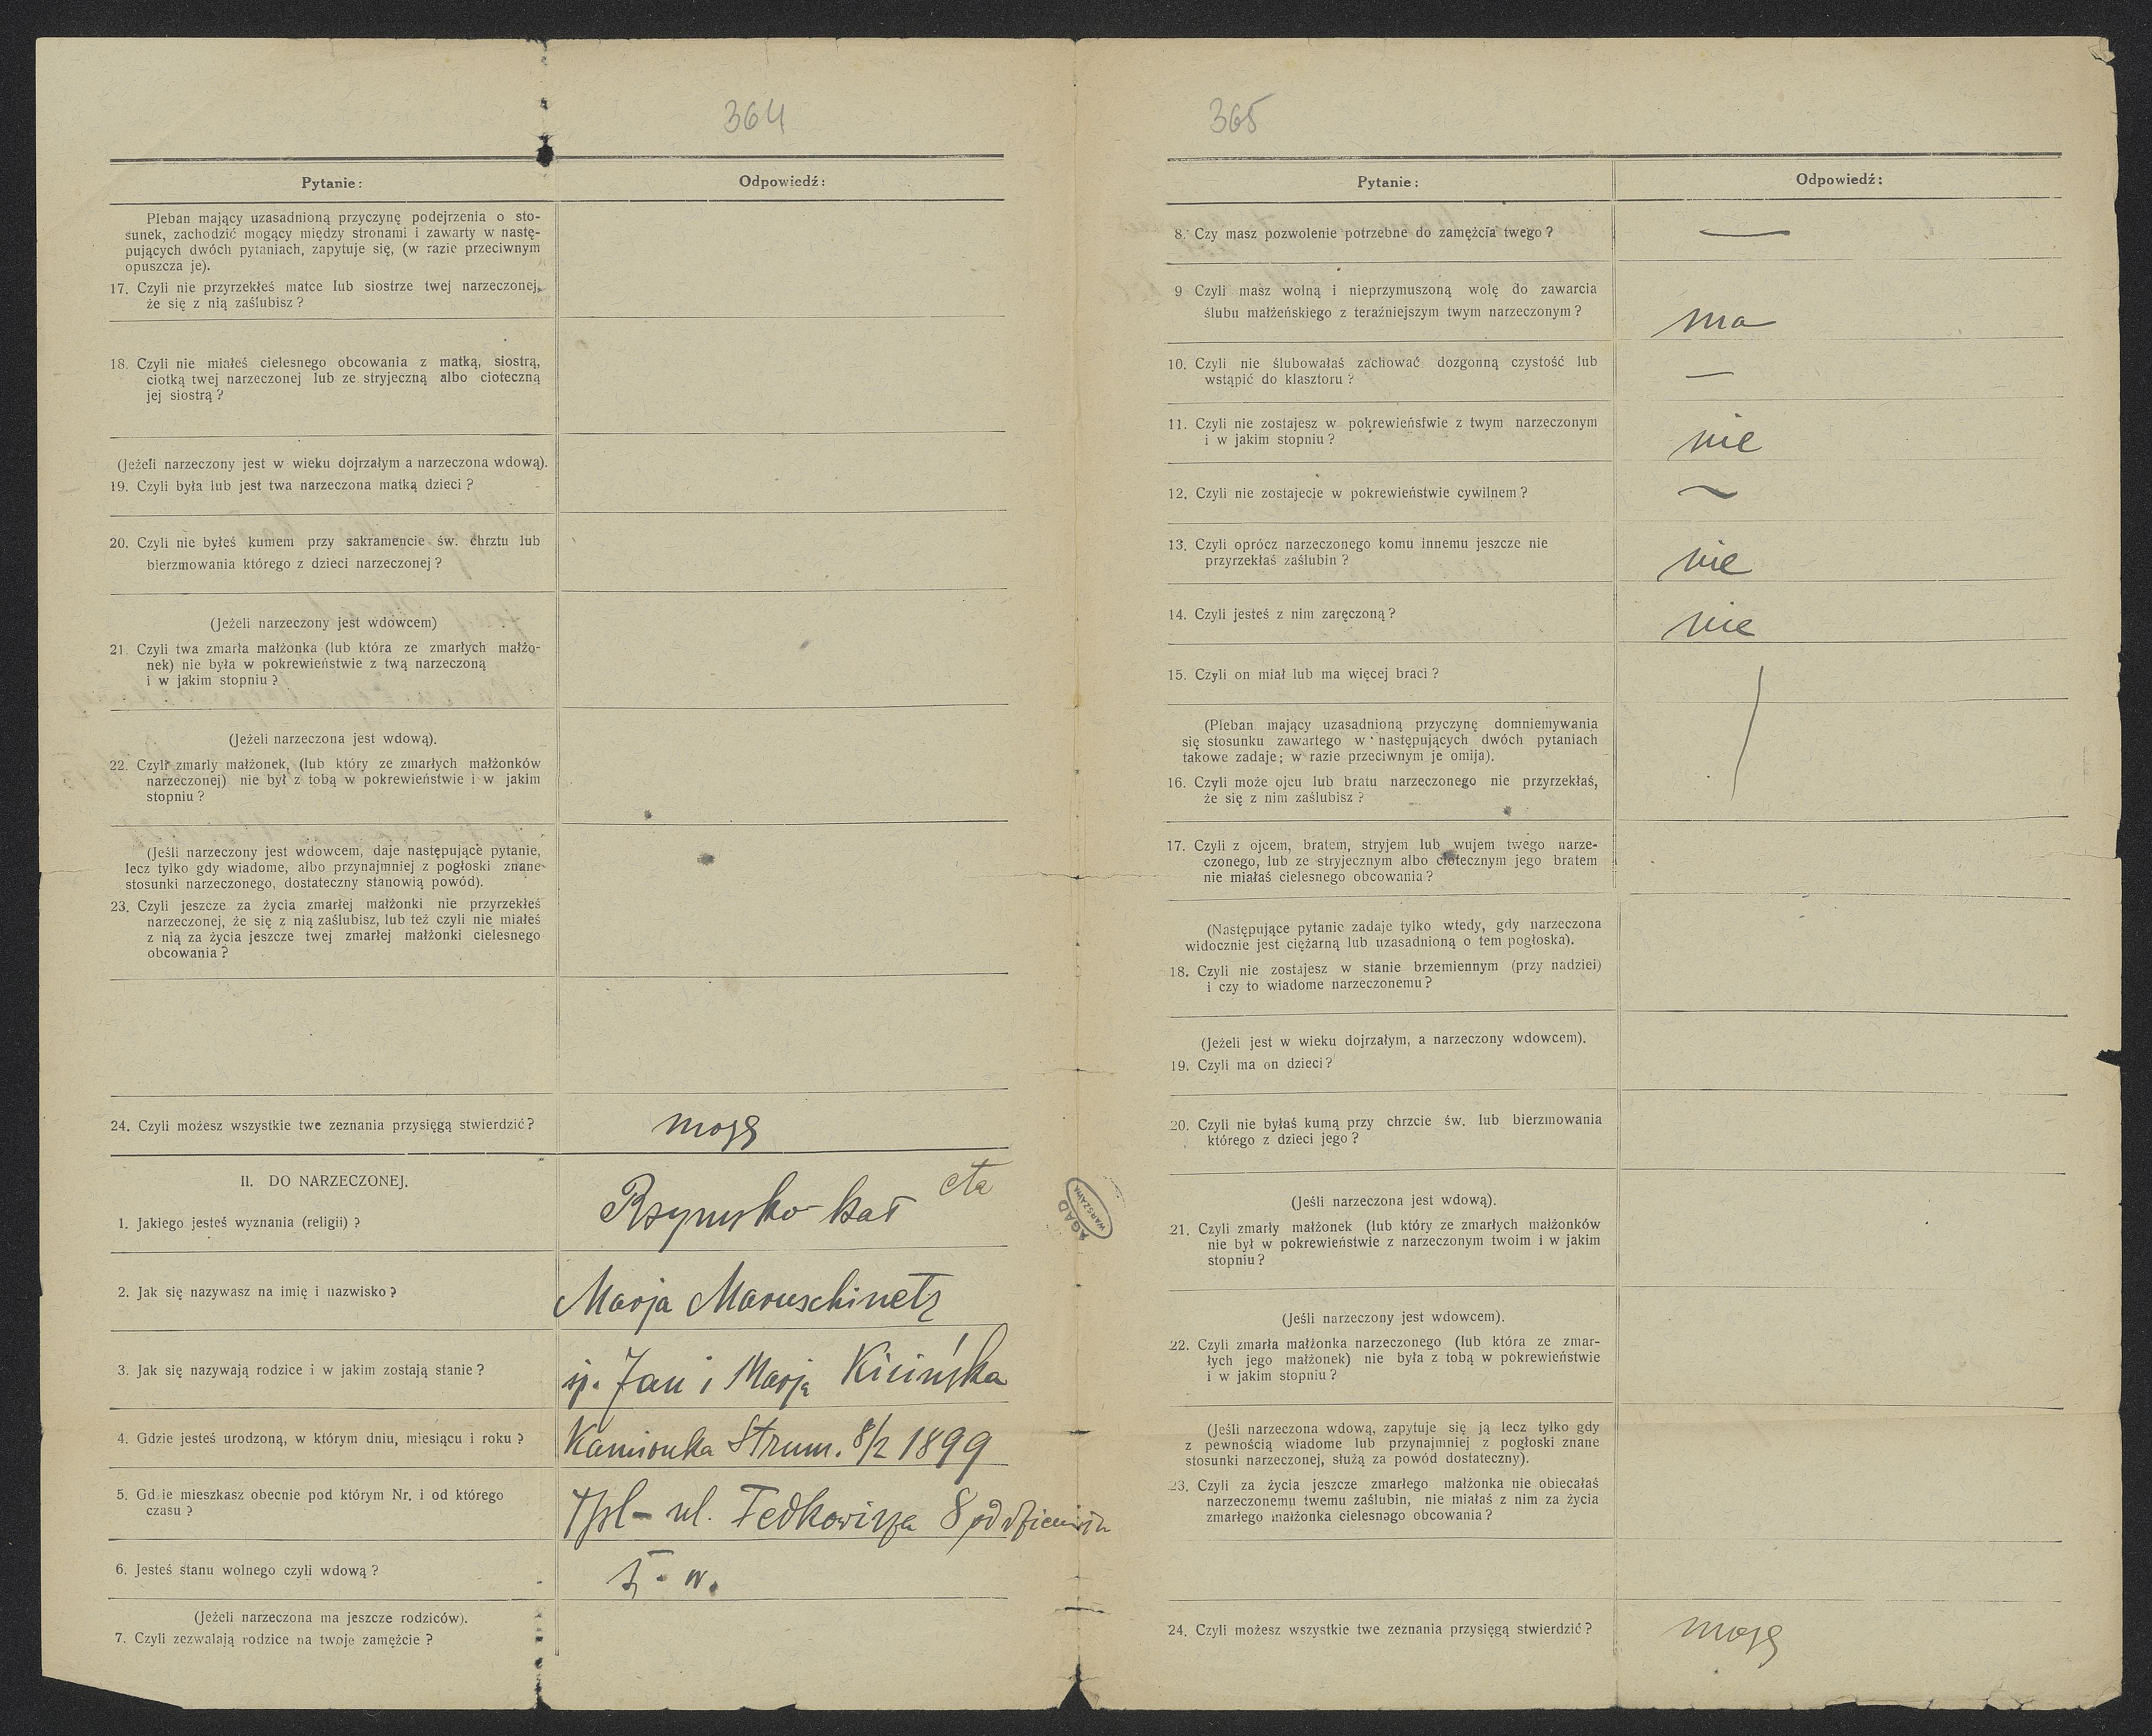 364
Pytanie:
Odpowiedź:
Pleban mający uzasadnioną przyczynę podejrzenia o sto-
sunek, zachodzić mogący między stronami i zawarty w nastę-
pujących dwóch pytaniach, zapytuje się, (w razie przeciwnym
opuszcza je).
17. Czyli nie przyrzekłeś matce lub siostrze twej narzeczonej,
że się z nią zaślubisz?
18. Czyli nie miałeś cielesnego obcowania z matką, siostrą,
ciotką twej narzeczonej lub ze stryjeczną albo cioteczną
jej siostrą?
(Jeżeli narzeczony jest w wieku dojrzałym a narzeczona wdową).
19. Czyli była lub jest twa narzeczona matką dzieci?
20. Czyli nie byłeś kumem przy sakramencie św. chrztu lub
bierzmowania którego z dzieci narzeczonej?
(Jeżeli narzeczony jest wdowcem)
21. Czyli twa zmarła małżonka (lub która ze zmarłych małżo-
nek) nie była w pokrewieństwie z twą narzeczoną
i w jakim stopniu?
(Jeżeli narzeczona jest wdową).
22. Czyli zmarly małżonek, (lub który ze zmarłych małżonków
narzeczonej) nie był z tobą w pokrewieństwie i w jakim
stopniu?
(Jeśli narzeczony jest wdowcem, daje następujące pytanie,
lecz tylko gdy wiadome, albo przynajmniej z pogłoski znane
stosunki narzeczonego, dostateczny stanowią powód).
23. Czyli jeszcze za życia zmarłej małżonki nie przyrzekłeś
narzeczonej, że się z nią zaślubisz, lub też czyli nie miałeś
z nią za życia jeszcze twej zmarłej małżonki cielesnego
obcowania?
24. Czyli możesz wszystkie twe zeznania przysięgą stwierdzić?
mogę
II. DO NARZECZONEJ.
1. Jakiego jesteś wyznania (religii)?
Rzymsko-kat
2. Jak się nazywasz na imię i nazwisko?
Marja Maruschinetz
3. Jak się nazywają rodzice i w jakim zostają stanie?
śp. Jan i Marja Kicińska
4. Gdzie jesteś urodzoną, w którym dniu, miesiącu i roku?
Kamionka Strum. 8/2 1899
5. Gdzie mieszkasz obecnie pod którym Nr. i od którego
czasu?
Tpl- ul. Fedkowicza 8
6. Jesteś stanu wolnego czyli wdową?
w.
(Jeżeli narzeczona ma jeszcze rodziców).
7. Czyli zezwalają rodzice na twoje zamężcie?
AGAD
WARSZAWA
365
Pytanie:
Odpowiedź:
8. Czy masz pozwolenie potrzebne do zamężcia twego?
—
9 Czyli masz wolną i nieprzymuszoną wolę do zawarcia
ślubu małżeńskiego z teraźniejszym twym narzeczonym?
ma
10. Czyli nie ślubowałaś zachować dozgonną czystość lub
wstąpić do klasztoru?
—
11. Czyli nie zostajesz w pokrewieństwie z twym narzeczonym
i w jakim stopniu?
nie
12. Czyli nie zostajecie w pokrewieństwie cywilnem?
~
13. Czyli oprócz narzeczonego komu innemu jeszcze nie
przyrzekłaś zaślubin?
nie
14. Czyli jesteś z nim zaręczoną?
nie
15. Czyli on miał lub ma więcej braci?
(Pleban mający uzasadnioną przyczynę domniemywania
się stosunku zawartego w następujących dwóch pytaniach
takowe zadaje; w razie przeciwnym je omija).
16. Czyli może ojcu lub bratu narzeczonego nie przyrzekłaś,
że się z nim zaślubisz?
17. Czyli z ojcem, bratem, stryjem lub wujem twego narze-
czonego, lub ze stryjecznym albo ciotecznym jego bratem
nie miałaś cielesnego obcowania?
(Następujące pytanie zadaje tylko wtedy, gdy narzeczona
widocznie jest ciężarną lub uzasadnioną o tem pogłoska).
18. Czyli nie zostajesz w stanie brzemiennym (przy nadziei)
i czy to wiadome narzeczonemu?
(Jeżeli jest w wieku dojrzałym, a narzeczony wdowcem).
19. Czyli ma on dzieci?
20. Czyli nie byłaś kumą przy chrzcie św. lub bierzmowania
którego z dzieci jego?
(Jeśli narzeczona jest wdową).
21. Czyli zmarły małżonek (lub który ze zmarłych małżonków
nie był w pokrewieństwie z narzeczonym twoim i w jakim
stopniu?
(Jeśli narzeczony jest wdowcem).
22. Czyli zmarła małżonka narzeczonego (lub która ze zmar-
łych jego małżonek) nie była z tobą w pokrewieństwie
i w jakim stopniu?
(Jeśli narzeczona wdową, zapytuje się ją lecz tylko gdy
z pewnością wiadome lub przynajmniej z pogłoski znane
stosunki narzeczonej, służą za powód dostateczny).
23. Czyli za życia jeszcze zmarłego małżonka nie obiecałaś
narzeczonemu twemu zaślubin, nie miałaś z nim za życia
zmarłego małżonka cielesnego obcowania?
24. Czyli możesz wszystkie twe zeznania przysięgą stwierdzić?
mogę